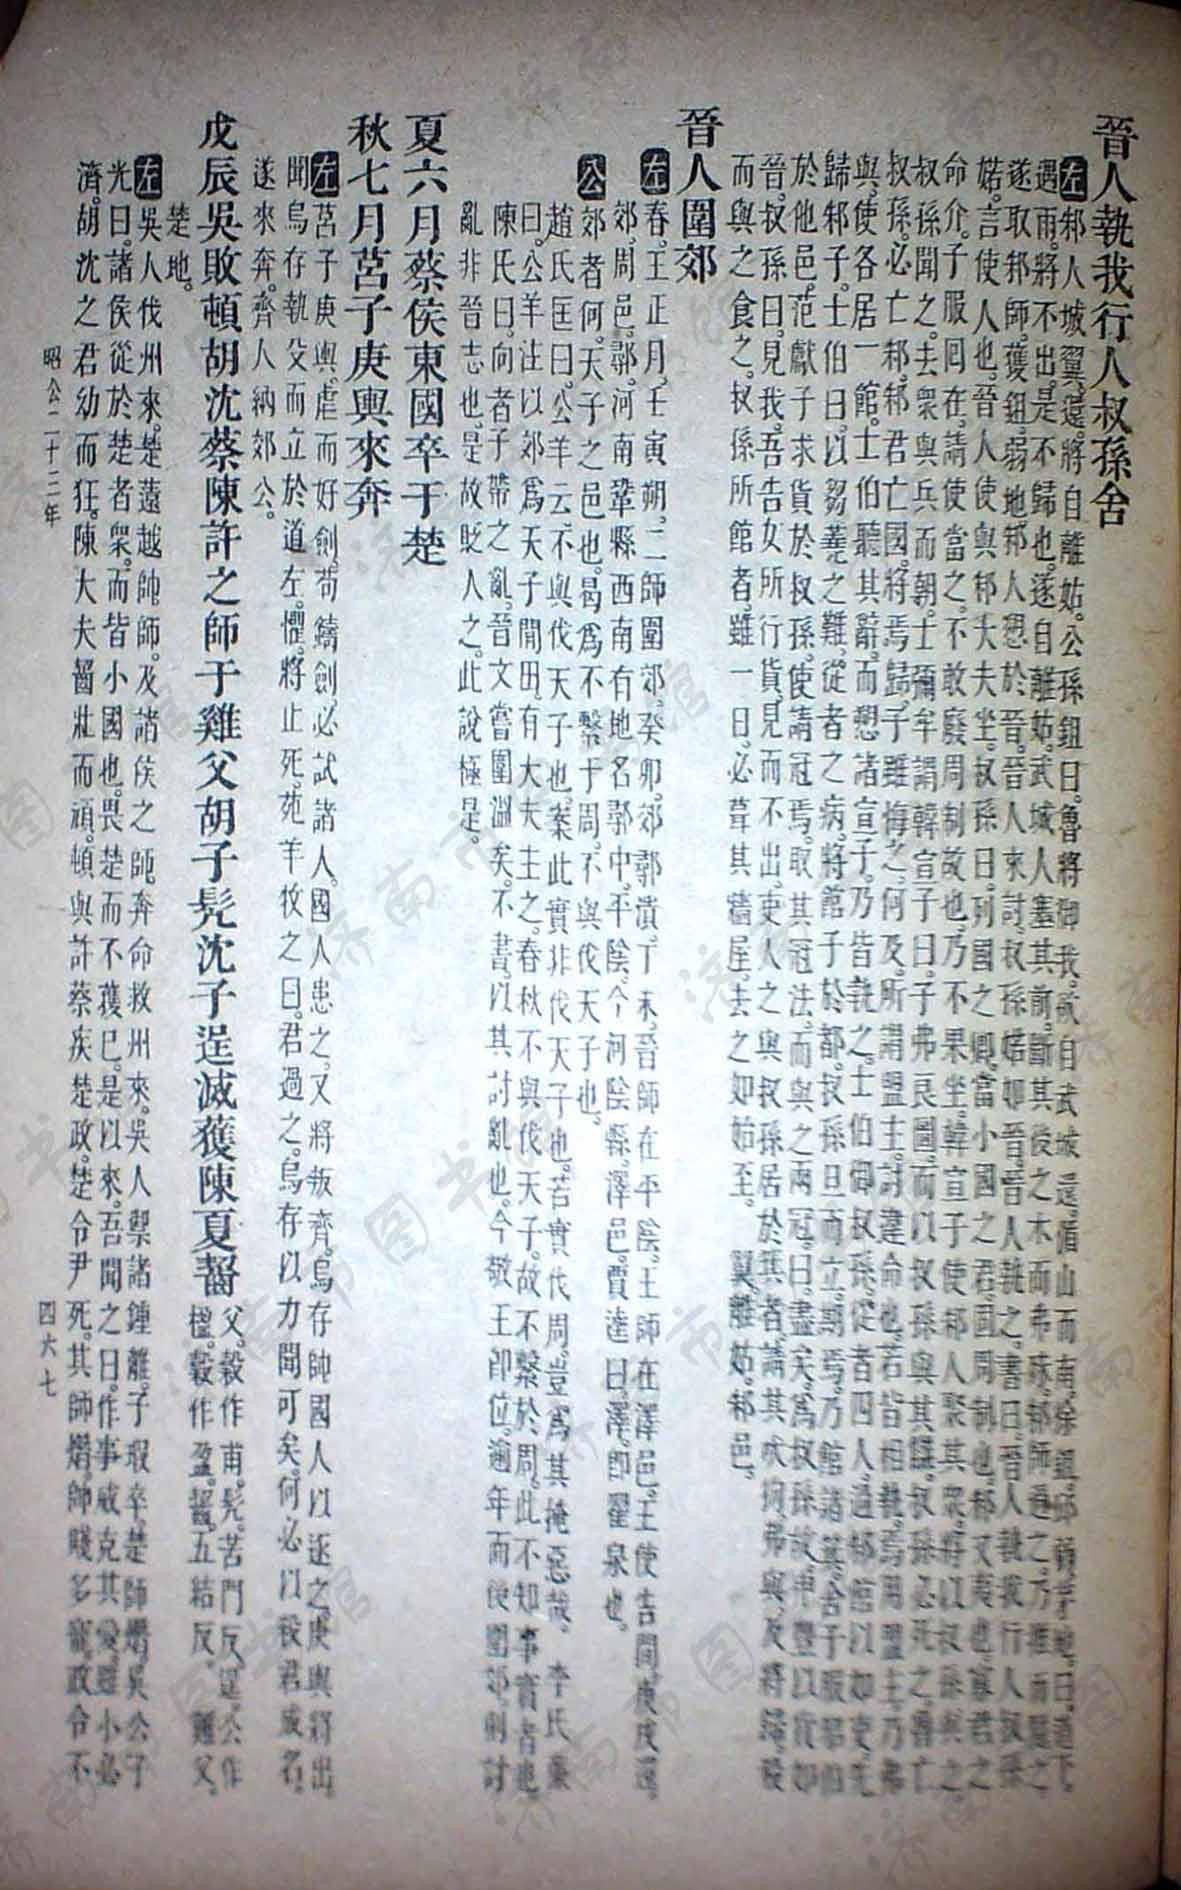 晉人執我行人叔孫舍
左邾人城翼還將自離姑公孫鉏曰魯將御我欲自武城還循山而南徐鉏邱弱茅地曰道下
遇雨將不出是不歸也遂自離姑武城人塞其前斷其後之木而弗殊邾師過之乃推而蹷之
遂取邾師獲鉏弱地邾人愬於晉晉人來討叔孫婼如晉晉人執之書曰晉人執我行人叔孫
婼言使人也晉人使與邾大夫坐叔孫曰列國之卿當小國之君固周制也邾又夷也寡君之
命介子服回在請使當之不敢廢周制故也乃不果坐韓宣子使邾人聚其眾將以叔孫與之
叔孫聞之去眾與兵而朝士彌牟謂韓宣子曰子弗良圖而以叔孫與其讎叔孫必死之魯亡
叔孫必亡邾邾君亡國將焉歸子雖悔之何及所謂盟主討違命也若皆相執焉用盟主乃弗
與使各居一館士伯聽其辭而愬諸宣子乃皆執之士伯御叔孫從者四人過邾館以如吏先
歸邾子士伯曰以芻蕘之難從者之病將館子於都叔孫旦而立期焉乃館諸箕舍子服昭伯
於他邑范獻子求貨於叔孫使請冠焉取其冠法而與之兩冠曰盡矣為叔孫故申豐以貨如
晉叔孫曰見我吾告女所行貨見而不出吏人之與叔孫居於箕者請其吠狗弗與及將歸殺
而與之食之叔孫所館者雖一日必葺其牆屋去之如始至 翼離姑邾邑
晉人圍郊
左春王正月壬寅朔二師圍郊癸卯郊鄩潰丁未晉師在平陰王師在澤邑王使告間庚戌還
郊周邑鄩河南鞏縣西南有地名鄩中平陰今河陰縣澤邑賈逵曰澤即翟泉也
公郊者何天子之邑也曷為不繫于周不與伐天子也
趙氏匡曰公羊云不與伐天子也案此實非伐天子也若實伐周豈為其掩惡哉 李氏廉
曰公羊注以郊為天子閒田有大夫主之春秋不與伐天子故不繫於周此不知事實者也
陳氏曰向者子帶之亂晉文嘗圍溫矣不書以其討亂也今敬王即位逾年而使圍郊則討
亂非晉志也是故貶人之此說極是
夏六月蔡侯東國卒于楚
秋七月莒子庚輿來奔
左莒子庚輿虐而好劍苟鑄劍必試諸人國人患之又將叛齊烏存帥國人以逐之庚輿將出
聞烏存執殳而立於道左懼將止死苑羊牧之曰君過之烏存以力聞可矣何必以弒君成名
遂來奔齊人納郊公
戊辰吳敗頓胡沈蔡陳許之師于雞父胡子髡沈子逞滅獲陳夏齧
父穀作甫髡苦門反逞公作
楹穀作盈齧五結反 雞父
楚地
左吳人伐州來楚薳越帥師及諸侯之師奔命救州來吳人禦諸鍾離子瑕卒楚師熸吳公子
光曰諸侯從於楚者眾而皆小國也畏楚而不獲已是以來吾聞之曰作事威克其愛雖小必
濟胡沈之君幼而狂陳大夫齧壯而頑頓與許蔡疾楚政楚令尹死其師熸師賤多寵政令不
昭公二十三年
四六七